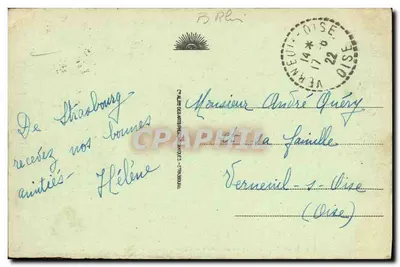 B Rhin
VERNEUIL-OISE
14 *
17 - 6
22
OISE
De Strasbourg
recevez nos bonnes
amitiés - Hélène
Monsieur André Quéry
et sa famille
Verneuil - s - Oise
(Oise)
CPARAMA